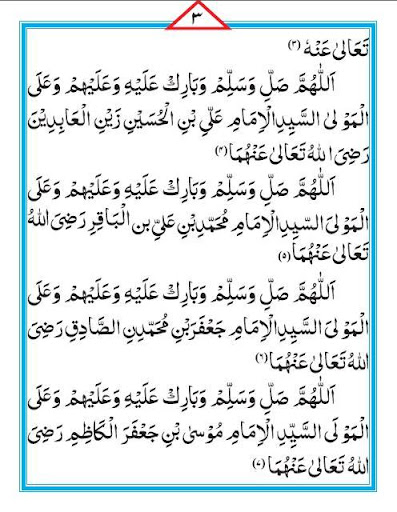 ٣
تَعَالىٰ عَنْهُ (٣)
اَللّٰهُمَّ صَلِّ وَسَلِّمْ وَبَارِكْ عَلَيْهِ وَعَلَيْهِمْ وَعَلَى
الْمَوْلىٰ السَّيِّدِ الْاِمَامِ عَلِّي بْنِ الْحُسَيْنِ زَيْنِ الْعَابِدِيْنَ
رَضِىَ اللهُ تَعَالىٰ عَنْهُمَا (٤)
اَللّٰهُمَّ صَلِّ وَسَلِّمْ وَبَارِكْ عَلَيْهِ وَعَلَيْهِمْ وَعَلَى
الْمَوْلىَ السَّيِّدِ الْاِمَامِ مُحَمَّدِ بْنِ عَلِيِّ بنِ الْبَاقِرِ رَضِىَ اللهُ
تَعَالىٰ عَنْهُمَا (٥)
اَللّٰهُمَّ صَلِّ وَسَلِّمْ وَبَارِكْ عَلَيْهِ وَعَلَيْهِمْ وَعَلَى
الْمَوْلىَ السَّيِّدِ الْاِمَامِ جَعْفَرَ بْنِ مُحَمَّدِنِ الصَّادِقِ رَضِىَ
اللهُ تَعَالىٰ عَنْهُمَا (٦)
اَللّٰهُمَّ صَلِّ وَسَلِّمْ وَبَارِكْ عَلَيْهِ وَعَلَيْهِمْ وَعَلَى
الْمَوْلَى السَّيِّدِ الْاِمَامِ مُوْسىٰ بْنِ جَعْفَرَ الْكَاظِمِ رَضِىَ
اللهُ تَعَالىٰ عَنْهُمَا (٧)